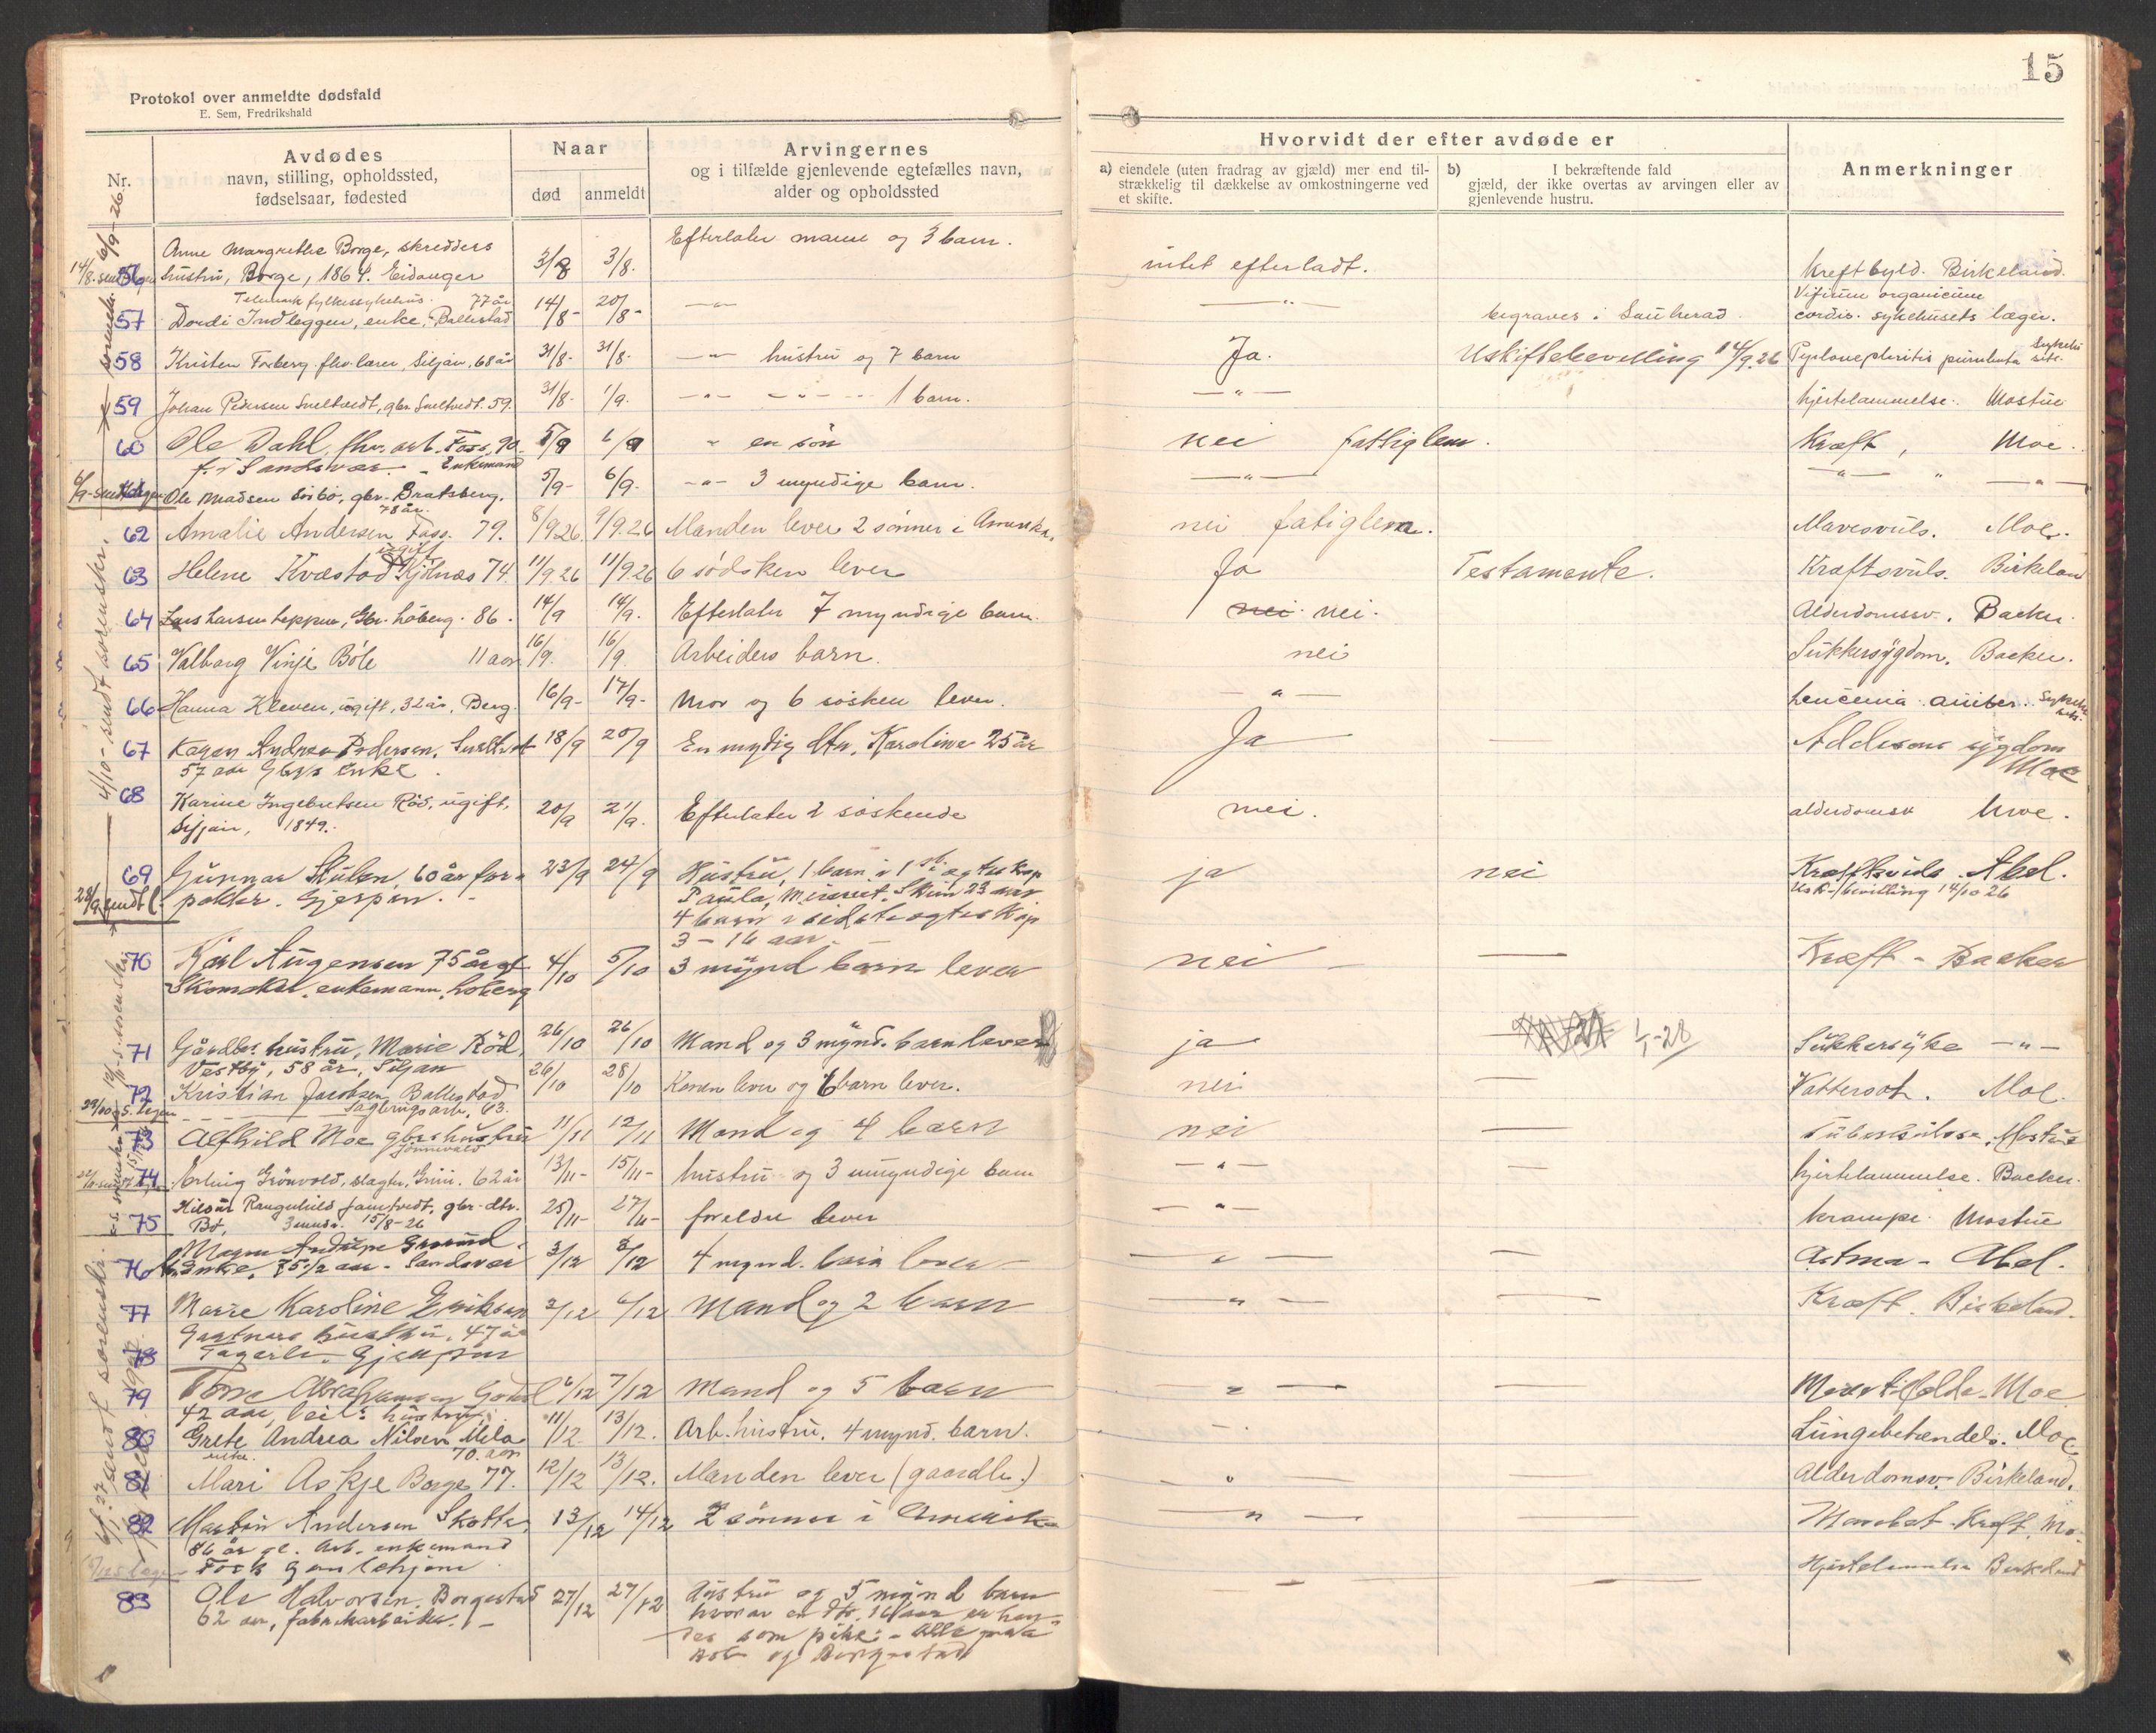 15
Protokol over anmeldte dødsfald
E. Sem, Fredrikshald
Nr.
Avdødes
navn, stilling, opholdssted,
fødselsaar, fødested
Naar
død
anmeldt
Arvingernes
og i tilfælde gjenlevende egtefælles navn,
alder og opholdssted
Hvorvidt der efter avdøde er
a) eiendele (uten fradrag av gjæld) mer end til-
strækkelig til dækkelse av omkostningerne ved
et skifte.
b) I bekræftende fald
gjæld, der ikke overtas av arvingen eller av
gjenlevende hustru.
Anmerkninger
Anne Margrethe Borge, skredders
Efterlater mann og 3 barn.
56 hustru, Borge, 1864. Eidanger 3/8 3/8. intet efterladt. Kreftbyld. Birkeland.
Telemark fylkessykehus. 77 år
57 Dordi Indleggen, enke, Ballestad 14/8- 20/8- —"— —"— begraves i Sauherad. Vitium organicum
cordis. sykehusets læger.
58 Kristen Forberg fhv. lærer, Siljan, 68 år 31/8- 31/8- —"— hustru og 7 barn Ja. Uskiftebevilling 14/9.26
59 Johan Pedersen Sneltvedt, gbr. Sneltvedt. 59. 31/8- 1/9. —"— —"— 1 barn. —"— hjertelammelse. Mostue
60 Ole Dahl, fhv. arb. Foss, 90. 5/9 6/9 " en søn nei fattiglem. Kræft, Moe.
f. i Sandsvær. - Enkemand
Ole Madsen Sørbø, gbr. Bratsberg. 5/9- 6/9- —"— 3 myndige barn. —"— —"— " —"—
78 år.
62 Amalie Andersen Foss. 79. 8/9 26. 9/9.26 Manden lever 2 sønner i Amerika. nei fatiglem. Mavesvuls. Moe.
ugift
63 Helene Kvæstad Kjølnæs 74. 11/9.26 11/9.26 6 sødsken lever Ja Testamente. Kræftsvuls. Birkeland
64 Lars Larsen Leppen, Gbr. Løberg. 86. 14/9 14/9. Efterlater 7 myndige barn. nei nei. Alderdomssv. Backer.
65 Valborg Vinje Bøle 11 aar 16/9. 16/9 Arbeiders barn. nei Sukkersygdom. Backer.
66 Hanna Kleven, ugift, 32 år, Berg. 16/9- 17/9- Mor og 6 søsken lever. —"—
67 Karen Andrea Pedersen, Sneltvedt 18/9 20/9 En myndig dtr. Karoline 25 år Ja — Addisons sygdom
57 aar Gbrs enke. Moe
68 Karine Ingebretsen Rød, ugift, 20/9 21/9. Efterlater 2 søskende nei. alderdomssv Moe.
Siljan, 1849.
69 Gunnar Stulen, 60 år for- 23/9 24/9 Hustru, 1 barn i 1ste ægteskap ja nei Kræftsvuls. Abel.
pakter. Gjerpen. Paula, Skien 23 aar Usk.bevilling 14/10 26
4 barn i sidste ægteskap
3 - 16 aar.
70 Karl Augensen 75 år gl. 4/10 5/10 3 mynd barn lever nei — Kræft - Backer
Skomaker, enkemann, Løberg
71 Gårdbr. hustru, Marie Rød, 26/10 26/10 Mand og 3 mynd. barn lever ja 1/1-28 Sukkersyke —"—
Vestby, 58 år, Siljan
72 Kristian Jacobsen Ballestad 26/10 28/10 Konen lever og 6 barn lever. nei — Vattersot. Moe.
63.
73 Alfhild Moe gbrs hustru 11/11 12/11 Mand og 4 barn nei — Tuberkulose. Mostue
74 Erling Grønvold, slagter, Grini. 62 år 13/11- 15/11- hustru og 3 umyndige barn —"— — hjertelammelse. Backer.
75 Ragnhild gbr. dtr. 25/11- 27/11- foreldre lever —"— krampe. Mostue
Bø, 3 mndr. 15/8-26
76 Enke, 75 1/2 aar - Sandsvær 3/12 3/12 4 mynd. barn lever —"— — Astma - Abel.
77 Marie Karoline Eriksen 2/12 6/12 Mand og 2 barn —"— — Kræft. Birkeland.
Gartners hustru, 47 år
78 Gjerpen
79 Abrahamsen 6/12 7/12 Mand og 5 barn —"— — Moe
42 aar, hustru
80 Grete Andrea Nilsen Mela 11/12 13/12. Arb. hustru, 4 mynd. barn. —"— Lungebetændels. Moe
enke. 70. aar
81 Mari Askje Borge 77. 12/12 13/12. Manden lever (gaardbr.) —"— — Alderdomsv. Birkeland.
82 Martin Andersen Skotter 13/12 14/12 2 sønner i Amerika —"— —
86 år gl. Arb. enkemand
Foss gamlehjem Hjertelammelse Birkeland
83 Ole Halvorsen, Borgestad 27/12 27/12 Hustru og 5 mynd barn — —
62 aar, fabrikarbeider. hvorav en dtr. 16 aar
som pike - Alle
og Borgestad